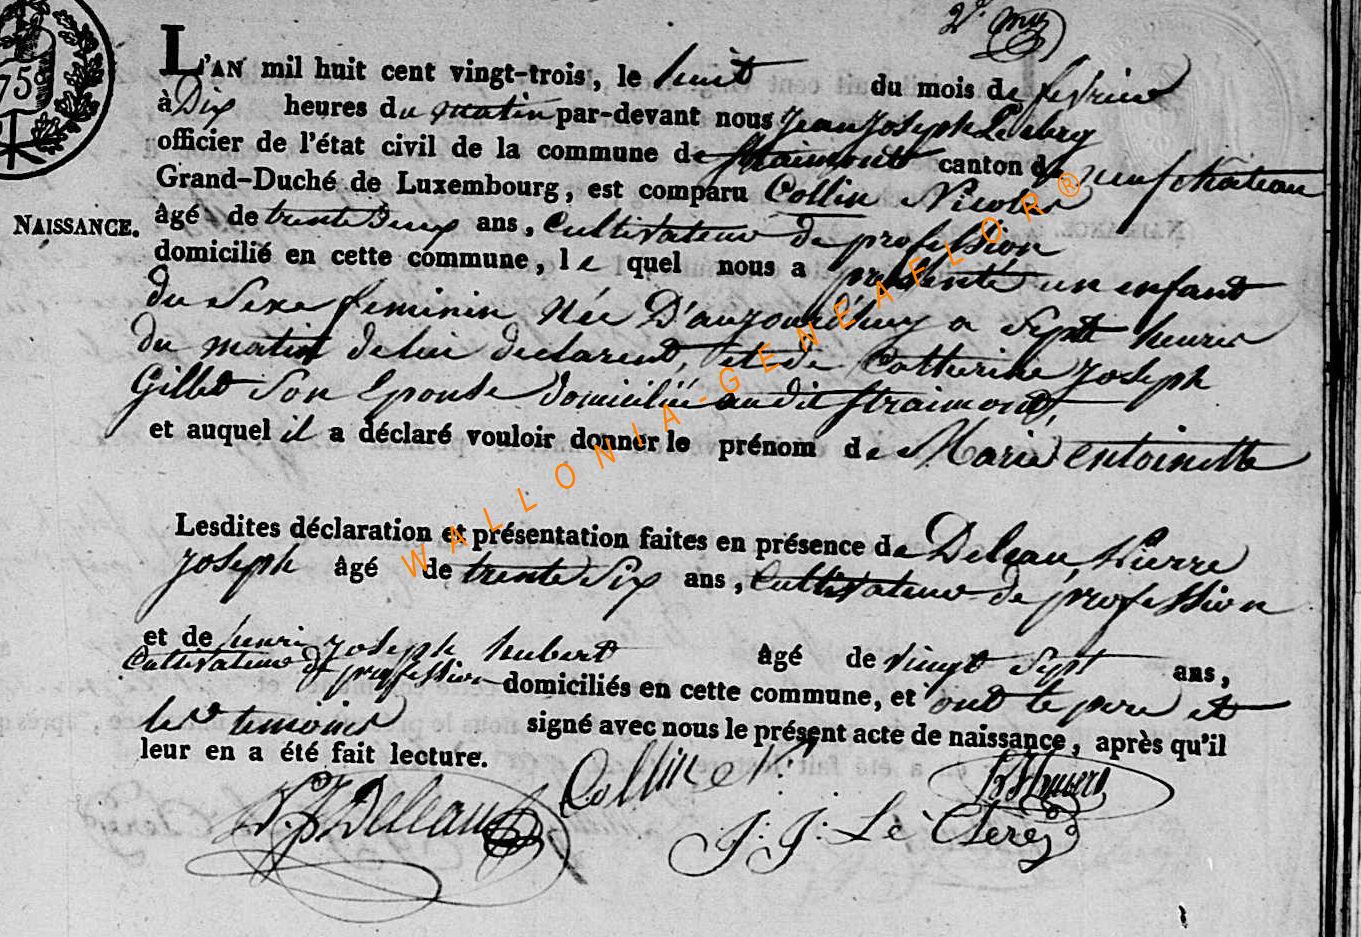 2e. my
75
L'AN mil huit cent vingt-trois, le huit du mois de fevrier
à Dix heures du matin par-devant nous Jean Joseph Leclercq
officier de l'état civil de la commune de Straimont canton de neufchateau
Grand-Duché de Luxembourg, est comparu Collin Nicolas
NAISSANCE.
âgé de trente Deux ans, Cultivateur de profession
domicilié en cette commune, le quel nous a présenté un enfant
du Sexe feminin Née D'aujourd'huy a Sept heures
du matin de lui declarent, et de Catherine Joseph
Gillet Son Epouse domiciliée audit Straimont,
et auquel il a déclaré vouloir donner le prénom de Marie entoinette
Lesdites déclaration et présentation faites en présence de Deleau, Pierre
Joseph âgé de trente Six ans, Cultivateur de profession
et de henri Joseph hubert âgé de vingt Sept ans,
Cultivateur de profession domiciliés en cette commune, et ont le pere et
les temoins signé avec nous le présent acte de naissance, après qu'il
leur en a été fait lecture.
Collin N.
P. J. Deleau
J: J: Le Clercq
WALLONIA-GENEAFLOR®